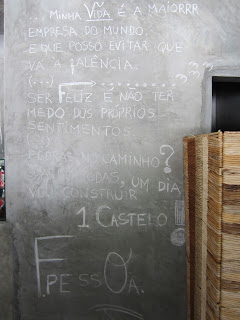 ... MINHA VIDA É A MAIORRR
EMPRESA DO MUNDO.
E QUE POSSO EVITAR QUE
VÁ A FALÊNCIA.
(...)
SER FELIZ É NÃO TER
MEDO DOS PRÓPRIOS
SENTIMENTOS.
NO CAMINHO?
UM DIA
CONSTRUIR
1 CASTELO
F.PESSOA.